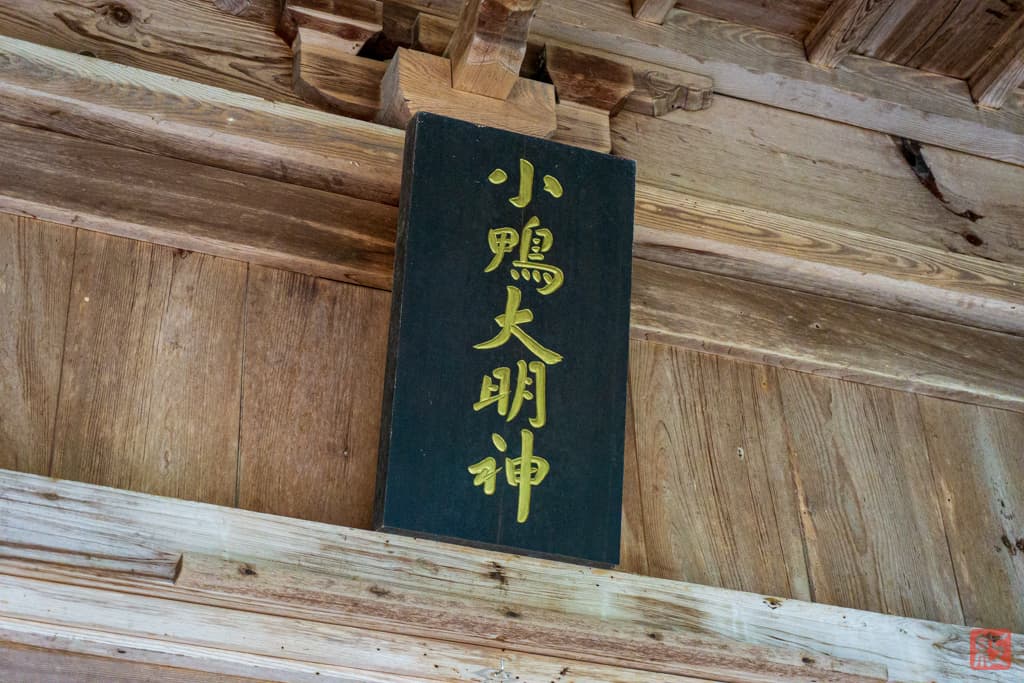 小鴨大明神